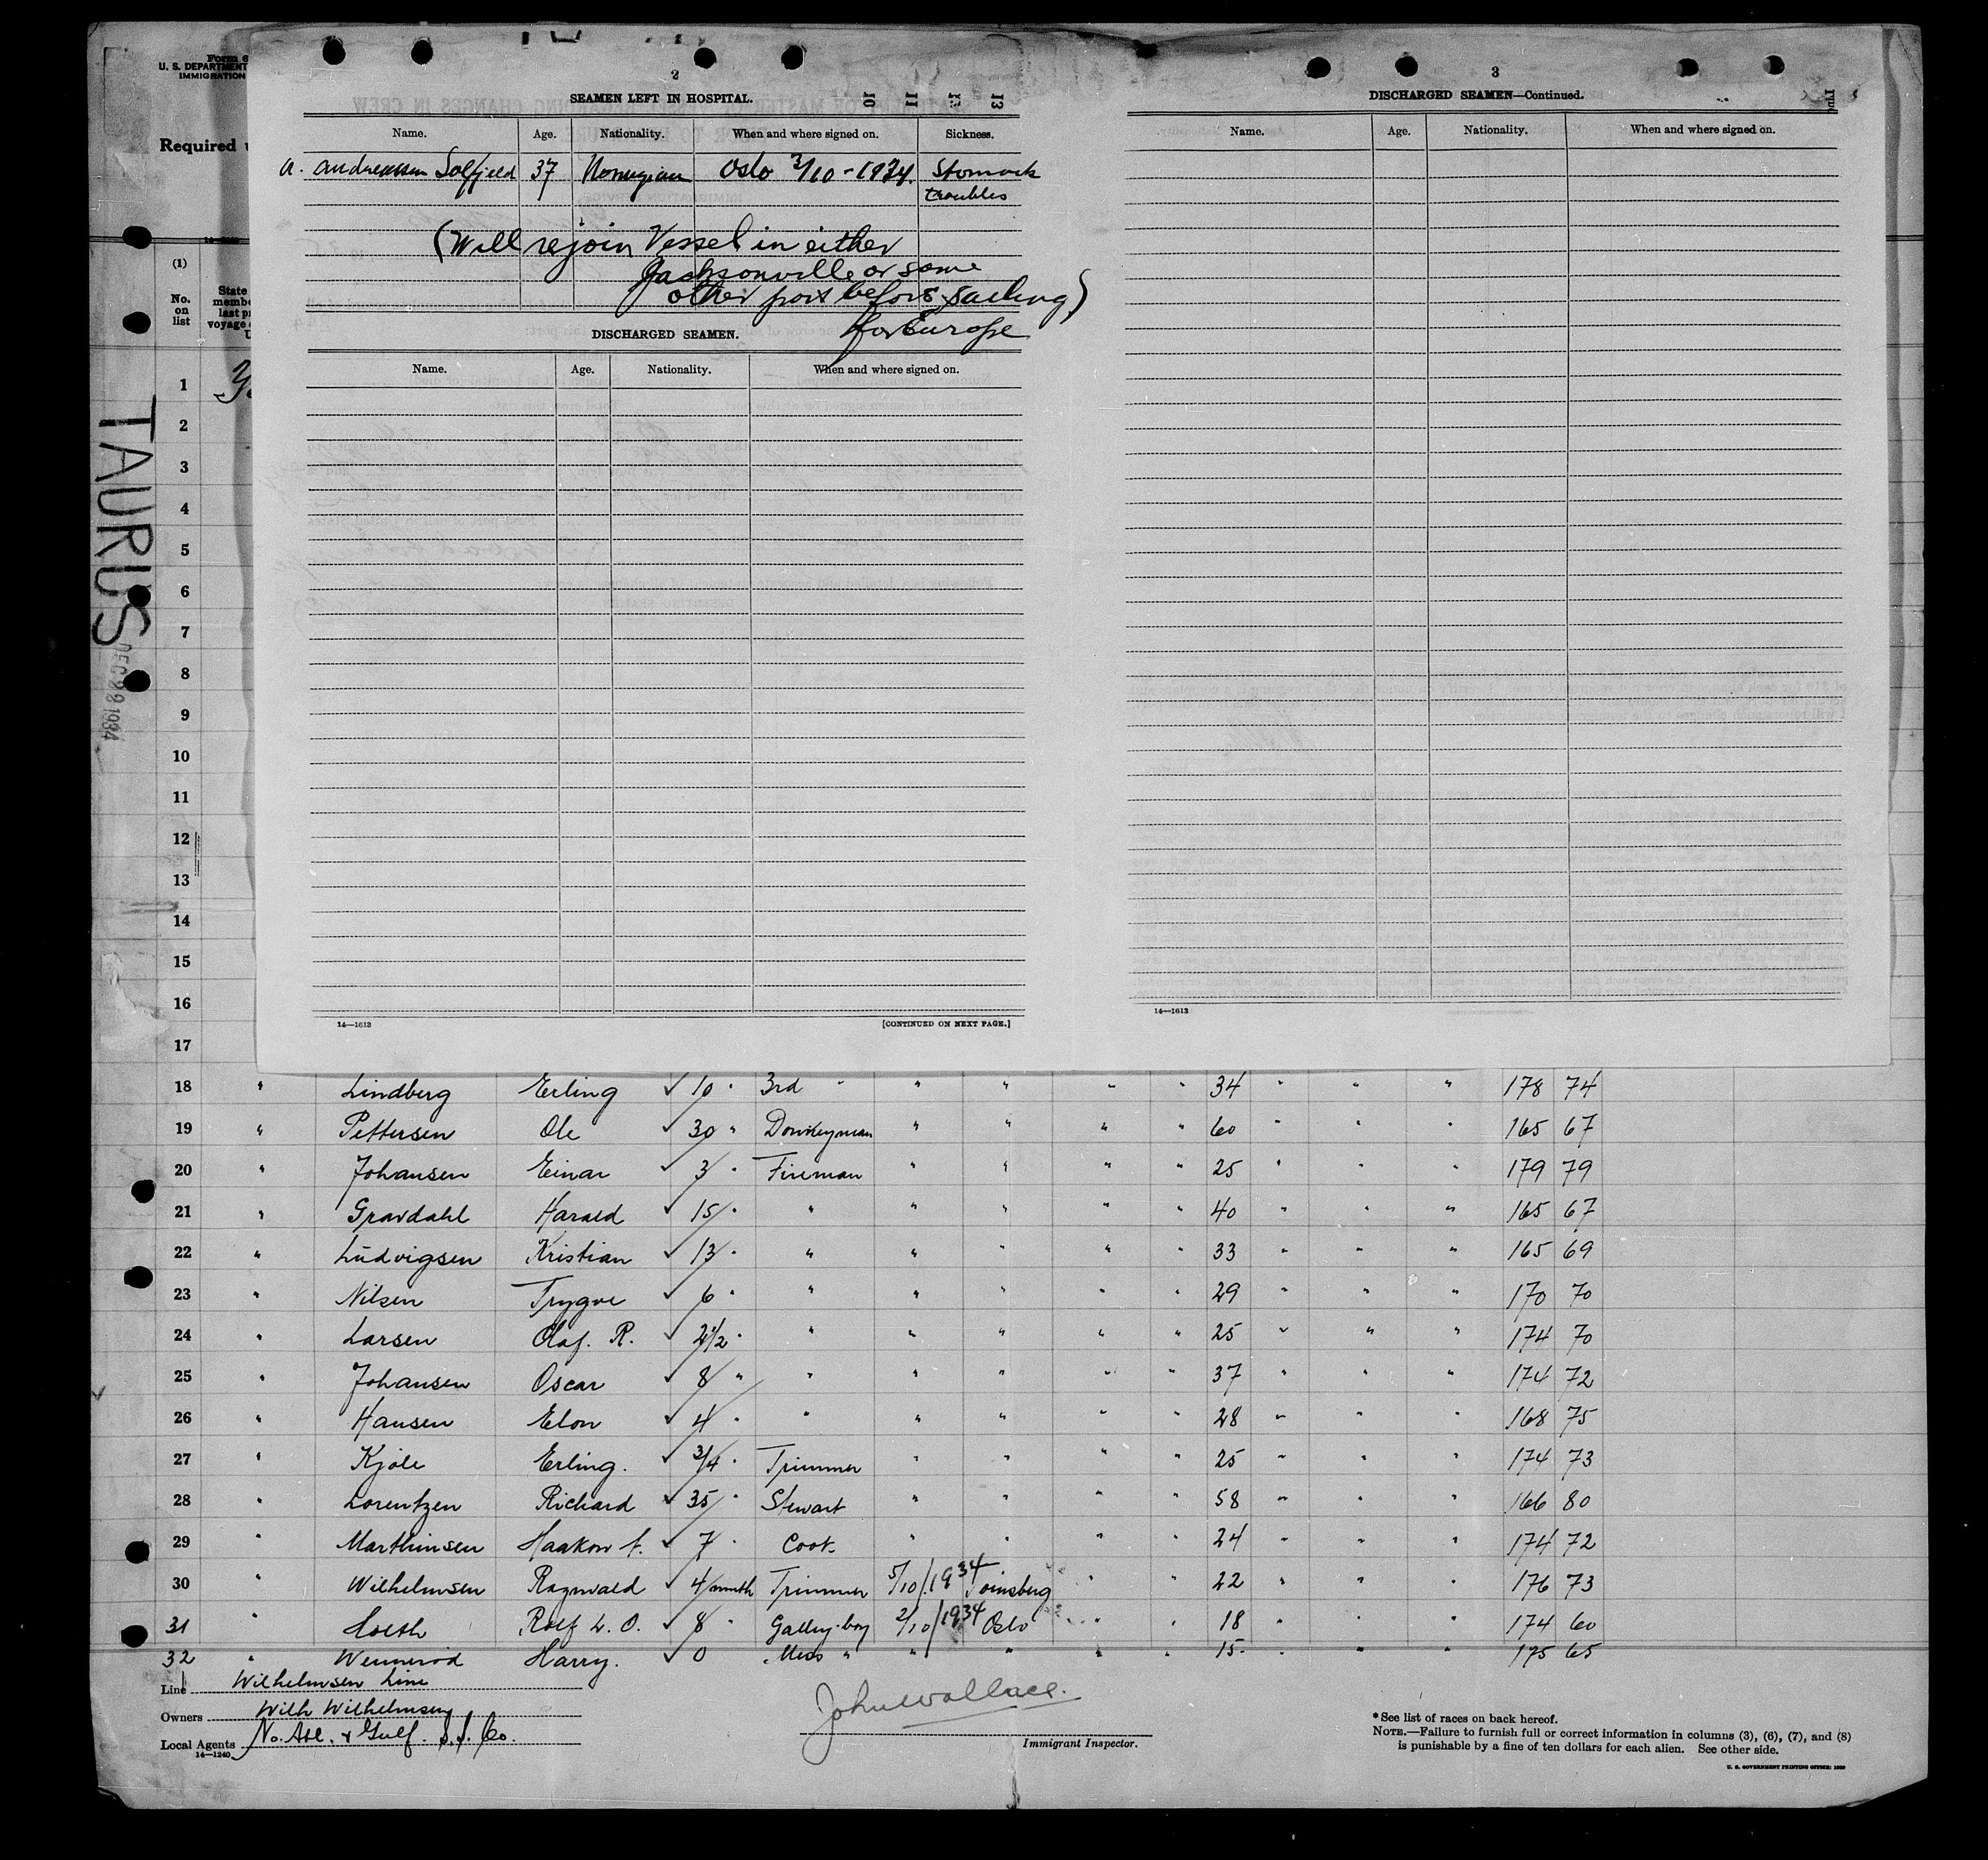 Form 6
U. S. DEPARTMENT
IMMIGRATION
Required
(1)
No. on list
State
membe
last pr
voyage
U
TAURUS
1934
2
SEAMEN LEFT IN HOSPITAL.
10 11 12 13
Name. Age. Nationality. When and where signed on. Sickness.
A. Andreassen Solfjeld 37 Norwegian Oslo 3/10-1934. Stomack
troubles
(Will rejoin Vessel in either
Jacksonville or some
other port before sailing)
for Europe
DISCHARGED SEAMEN.
Name. Age. Nationality. When and where signed on.
14—1613
[CONTINUED ON NEXT PAGE.]
3
DISCHARGED SEAMEN—Continued.
Name. Age. Nationality. When and where signed on.
14—1613
1
2
3
4
5
6
7
8
9
10
11
12
13
14
15
16
17
18 " Lindberg Erling ✓ 10 " 3rd " " " " " 34 " " " 178 74
19 " Pettersen Ole ✓ 30 " Donkeyman " " " " 60 " " " 165 67
20 " Johansen Einar ✓ 3 " Fireman " " " " 25 " " " 179 79
21 " Gravdahl Harald ✓ 15 " " " " " " 40 " " " 165 67
22 " Ludvigsen Kristian ✓ 13 " " " " " " 33 " " " 165 69
23 " Nilsen Trygve ✓ 6 " " " " " " 29 " " " 170 70
24 " Larsen Olaf. R. ✓ 2 1/2 " " " " " " 25 " " " 174 70
25 " Johansen Oscar ✓ 8 " " " " " " 37 " " " 174 72
26 " Hansen Elon ✓ 4 " " " " " " 28 " " " 168 75
27 " Kjøle Erling. ✓ 3/4 " Trimmer " " " " 25 " " " 174 73
28 " Lorentzen Richard ✓ 35 " Stewart " " " " 58 " " " 166 80
29 " Marthinsen Haakon ✓ 7 " Cook " " " " 24 " " " 174 72
30 " Wilhelmsen Ragnvald ✓ 4/month Trimmer 5/10/1934 " " 22 " " " 176 73
31 " Rolf L. O. ✓ 8 " Galley-boy 2/10/1934 Oslo " " 18 " " " 174 60
32 " Harry. ✓ 0 Mess " " " " " 15 " " " 175 65
Line Wilhelmsen Line
Owners Wilh Wilhelmsen
Local Agents No. Atl. & Gulf. S. S. Co.
14—1240
John Wallace.
Immigrant Inspector.
*See list of races on back hereof.
NOTE.—Failure to furnish full or correct information in columns (3), (6), (7), and (8)
is punishable by a fine of ten dollars for each alien. See other side.